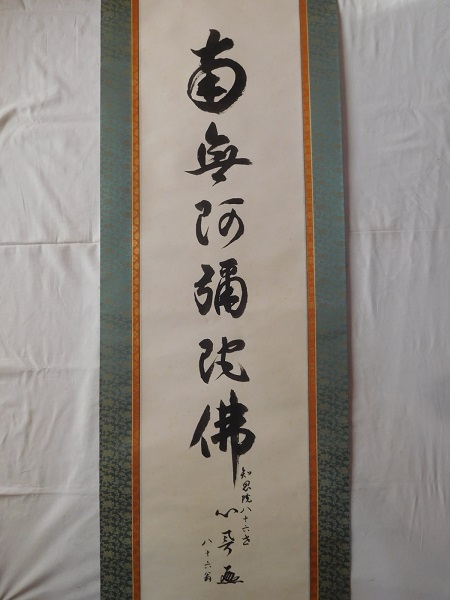 南無阿彌陀佛
知恩院八十六世
心誉
八十六翁